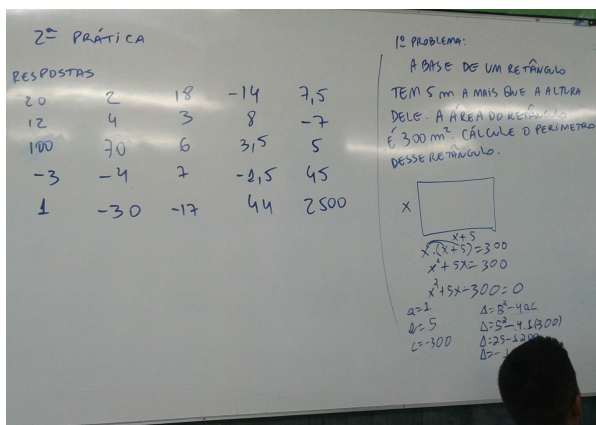 2ª PRÁTICA
RESPOSTAS
20 2 18 -14 7,5
12 4 3 8 -7
100 70 6 3,5 5
-3 -4 7 -1,5 45
1 -30 -17 44 2500
1º PROBLEMA:
A BASE DE UM RETÂNGULO
TEM 5 m A MAIS QUE A ALTURA
DELE. A ÁREA DO RETÂNGULO
É 300 m² CÁLCULE O PERIMETRO
DESSE RETÂNGULO.
X
x+5
x.(x+5)=300
x²+5x=300
x²+5x-300=0
a=1 Δ=B²-4ac
b=5 Δ=5²-4.1(300)
c=-300 Δ=25-120
Δ=-